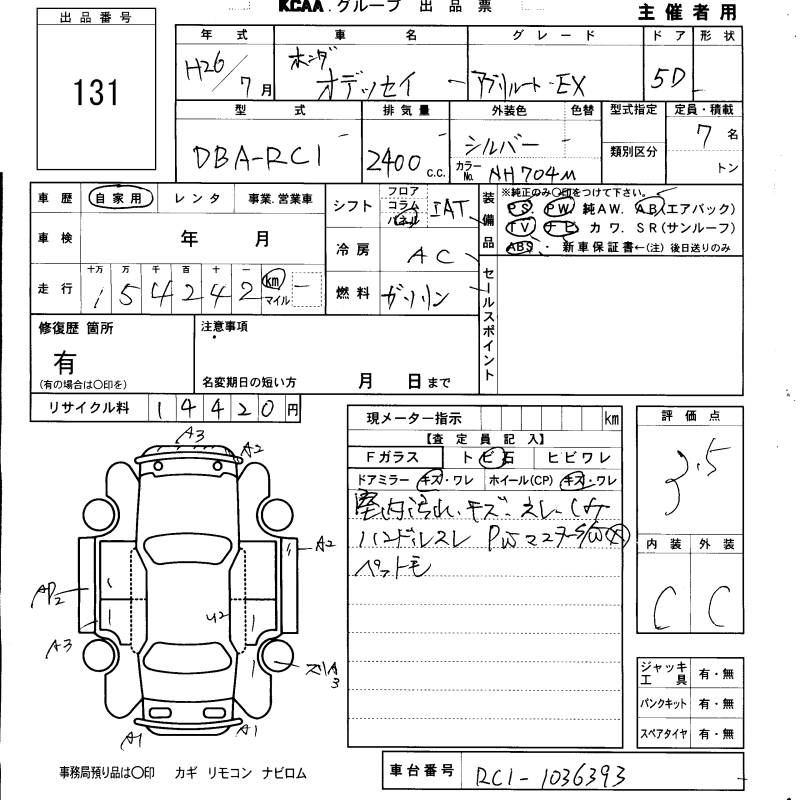 KCAA.グループ 出品票
主催者用
出品番号
131
年式 車名 グレード ドア 形状
H26/7月 ホンダ オデッセイ アブソルート・EX 5D
型式 排気量 外装色 色替 型式指定 定員・積載
DBA-RC1 2400 c.c. シルバー 7名
カラーNo. NH704M 類別区分 トン
車歴 自家用 レンタ 事業.営業車
シフト フロア コラム パネル IAT
装備品 ※純正のみ○印をつけて下さい。
PS. PW. 純AW. AB(エアバック)
TV ナビ カワ. SR(サンルーフ)
ABS ・ 新車保証書←(注) 後日送りのみ
車検 年 月
冷房 AC
走行 十万 万 千 百 十 一
154242 km マイル
燃料 ガソリン
セールスポイント
修復歴 箇所
有
(有の場合は○印を)
注意事項
名変期日の短い方 月 日まで
リサイクル料 14420円
現メーター指示 km
【査定員記入】
Fガラス トビ石 ヒビワレ
ドアミラー キズ・ワレ ホイール(CP) キズ・ワレ
室内汚れ、キズ、スレ、コゲ
ハンドルスレ PWマスターS/W
ペット毛
評価点
3.5
内装 外装
C C
A3
A2
A2
AP2
A3
U2
ズリA3
A1
A1
ジャッキ工具 有・無
パンクキット 有・無
スペアタイヤ 有・無
事務局預り品は○印 カギ リモコン ナビロム
車台番号 RC1-1036393